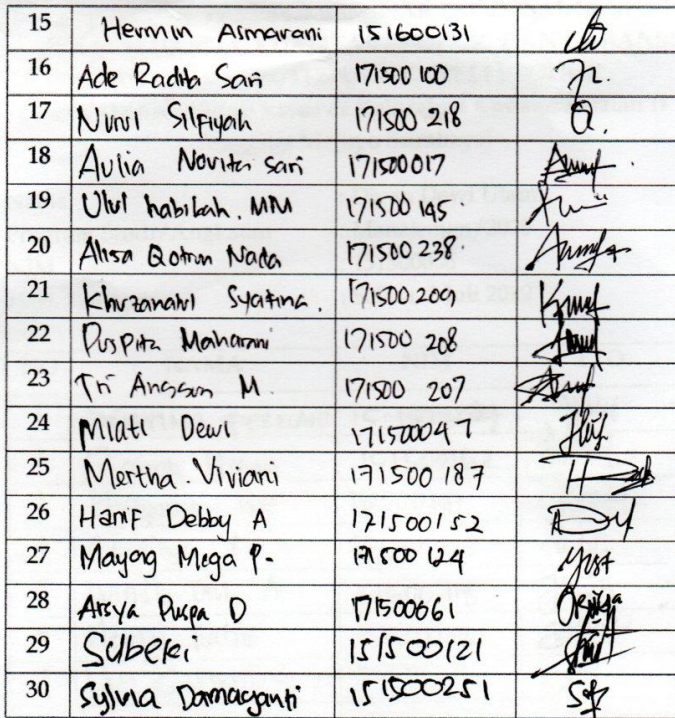 15 Hermin Asmarani 151600131
16 Ade Radita Sari 171500100
17 Nurul Silfiyah 171500218
18 Aulia Novita sari 171500017
19 Ulul habibah. MM 171500145
20 Alisa Qotrun Nada 171500238
21 Khuzanatul Syafina. 171500209
22 Puspita Maharani 171500 208
23 Tri M 171500 207
24 Miati Dewi 171500047
25 Mertha. Viviani 171500187
26 Hanif Debby A 171500152
27 Mayang Mega P. 171500124
28 Arsya Puspa D 171500061
29 Subeki 151500121
30 Sylvia Damayanti 151500251